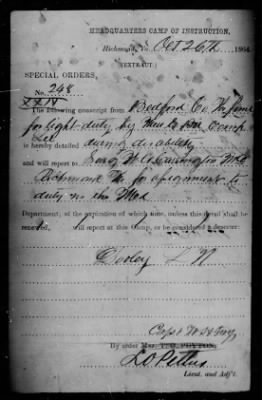 HEADQUARTERS CAMP OF INSTRUCTION,
Richmond, Va. Oct 26th 1864
[EXTRACT]
SPECIAL ORDERS,
No. 248
XXIV
The following conscript from Bedford Co Va found
for light duty by Med Ex
is hereby detailed during disability
and will report to Surg W A Carrington M D
Richmond Va for assignment to
duty in the Med
Department; at the expiration of which time, unless this detail shall be
renewed, will report at this Camp, or be considered a deserter:
L N
By order Maj. T. G. PEYTON,
L D Pettus
Lieut. and Adj't.